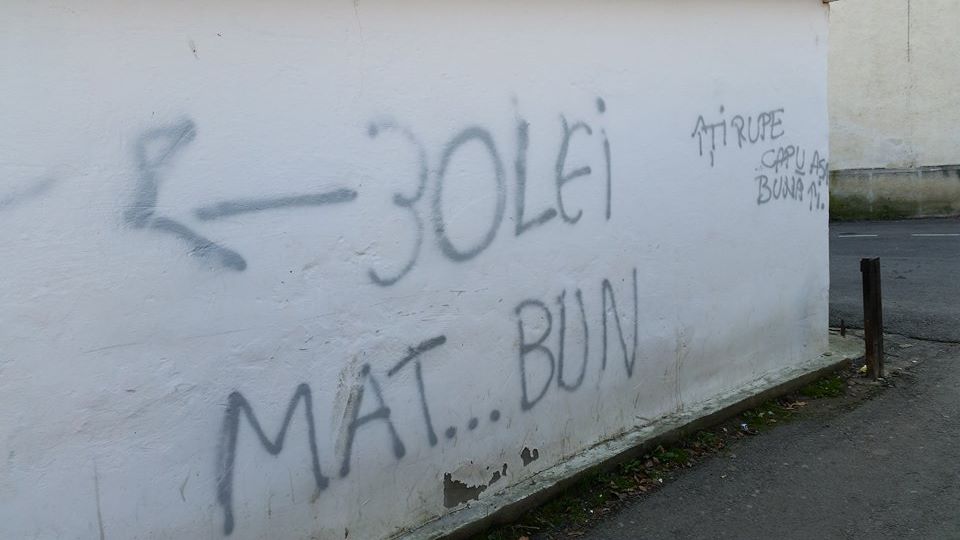 30 LEi
MAT... BUN
ȚI RUPE
CAPU AȘA
BUNĂ I.